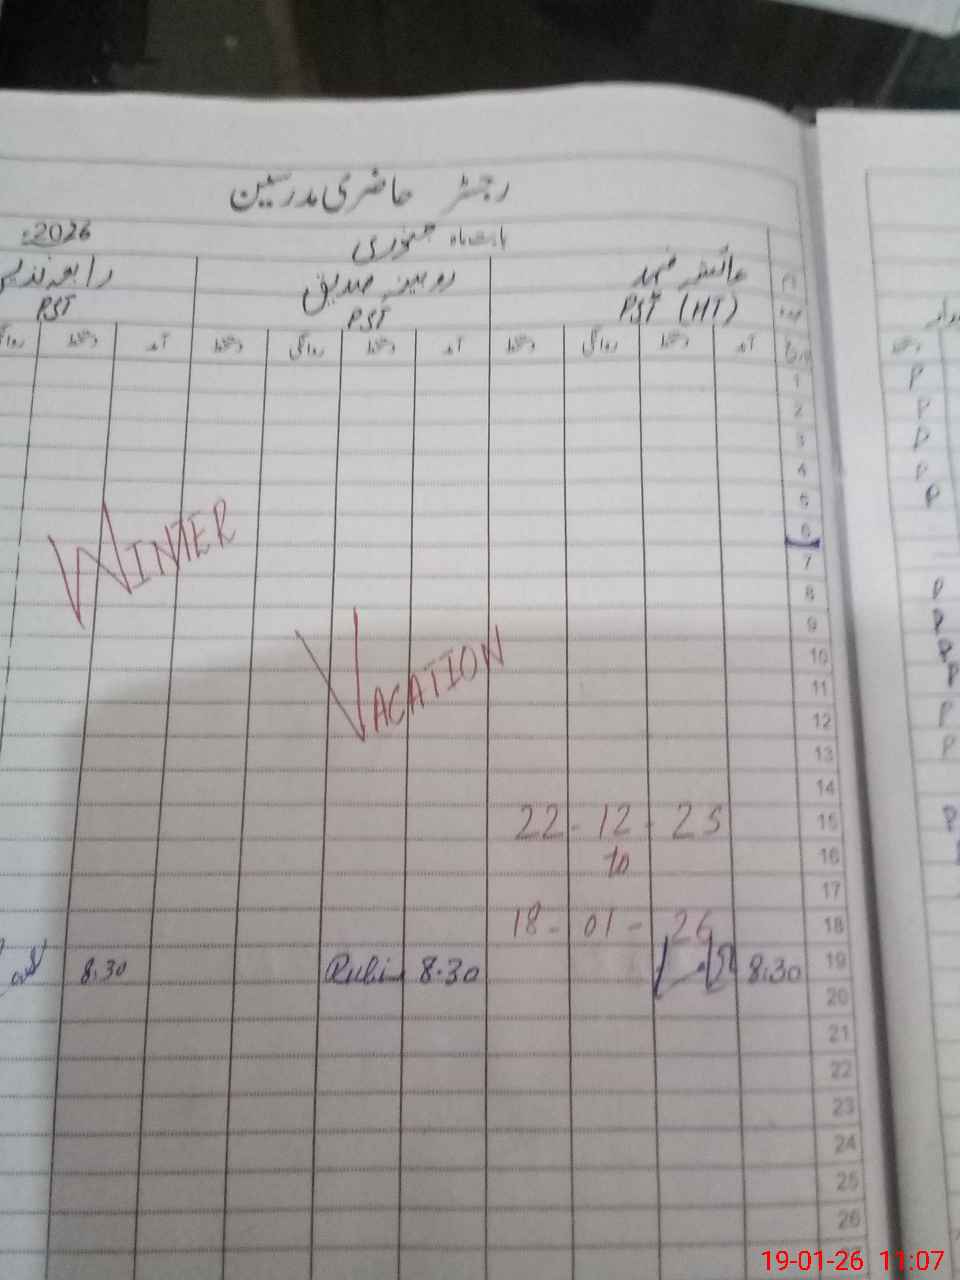 رجسٹر حاضری مدرسین
بابت ماہ جنوری 2026ء
عائشہ فہد روبینہ صدیق رابعہ
PST (HT) PST PST
آمد دستخط روانگی دستخط آمد دستخط روانگی دستخط آمد دستخط
1
P
2
P
3
P
4
P
5
P
6
7
8
P
9
P
10
P
11
P
12
P
13
P
14
WINTER
VACATION
22 - 12 - 25
15
P
to
16
17
18 - 01 - 26
18
8:30 Rubi 8:30 8:30
19
20
21
22
23
24
25
26
19-01-26 11:07